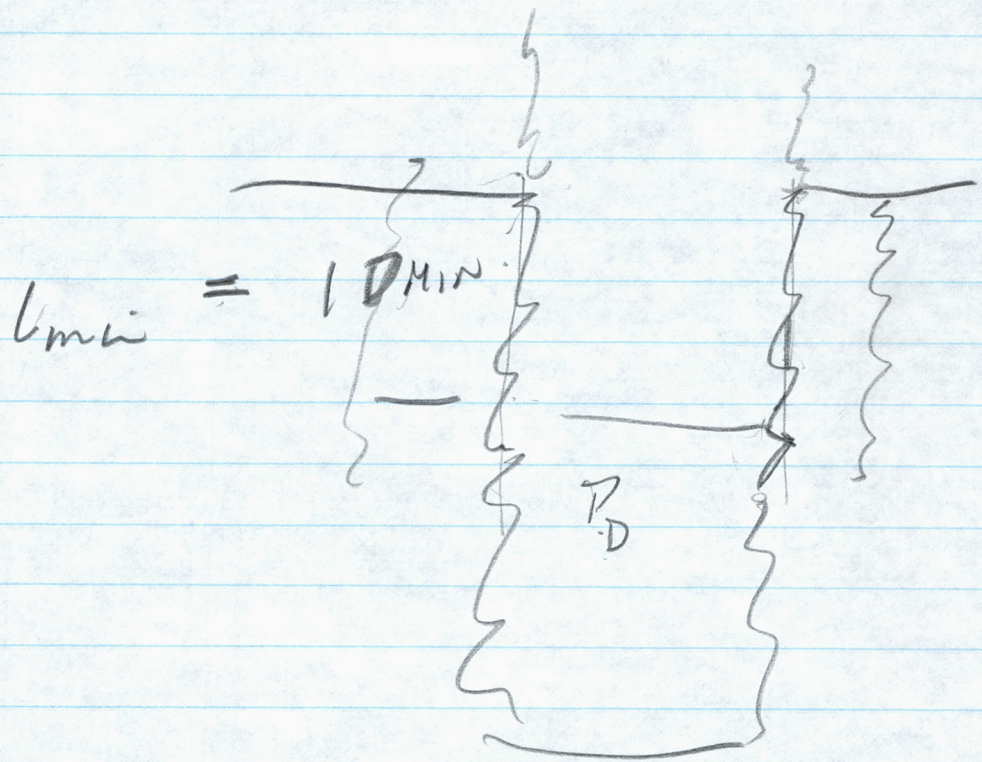 Lmin = 1 DMIN.
PD